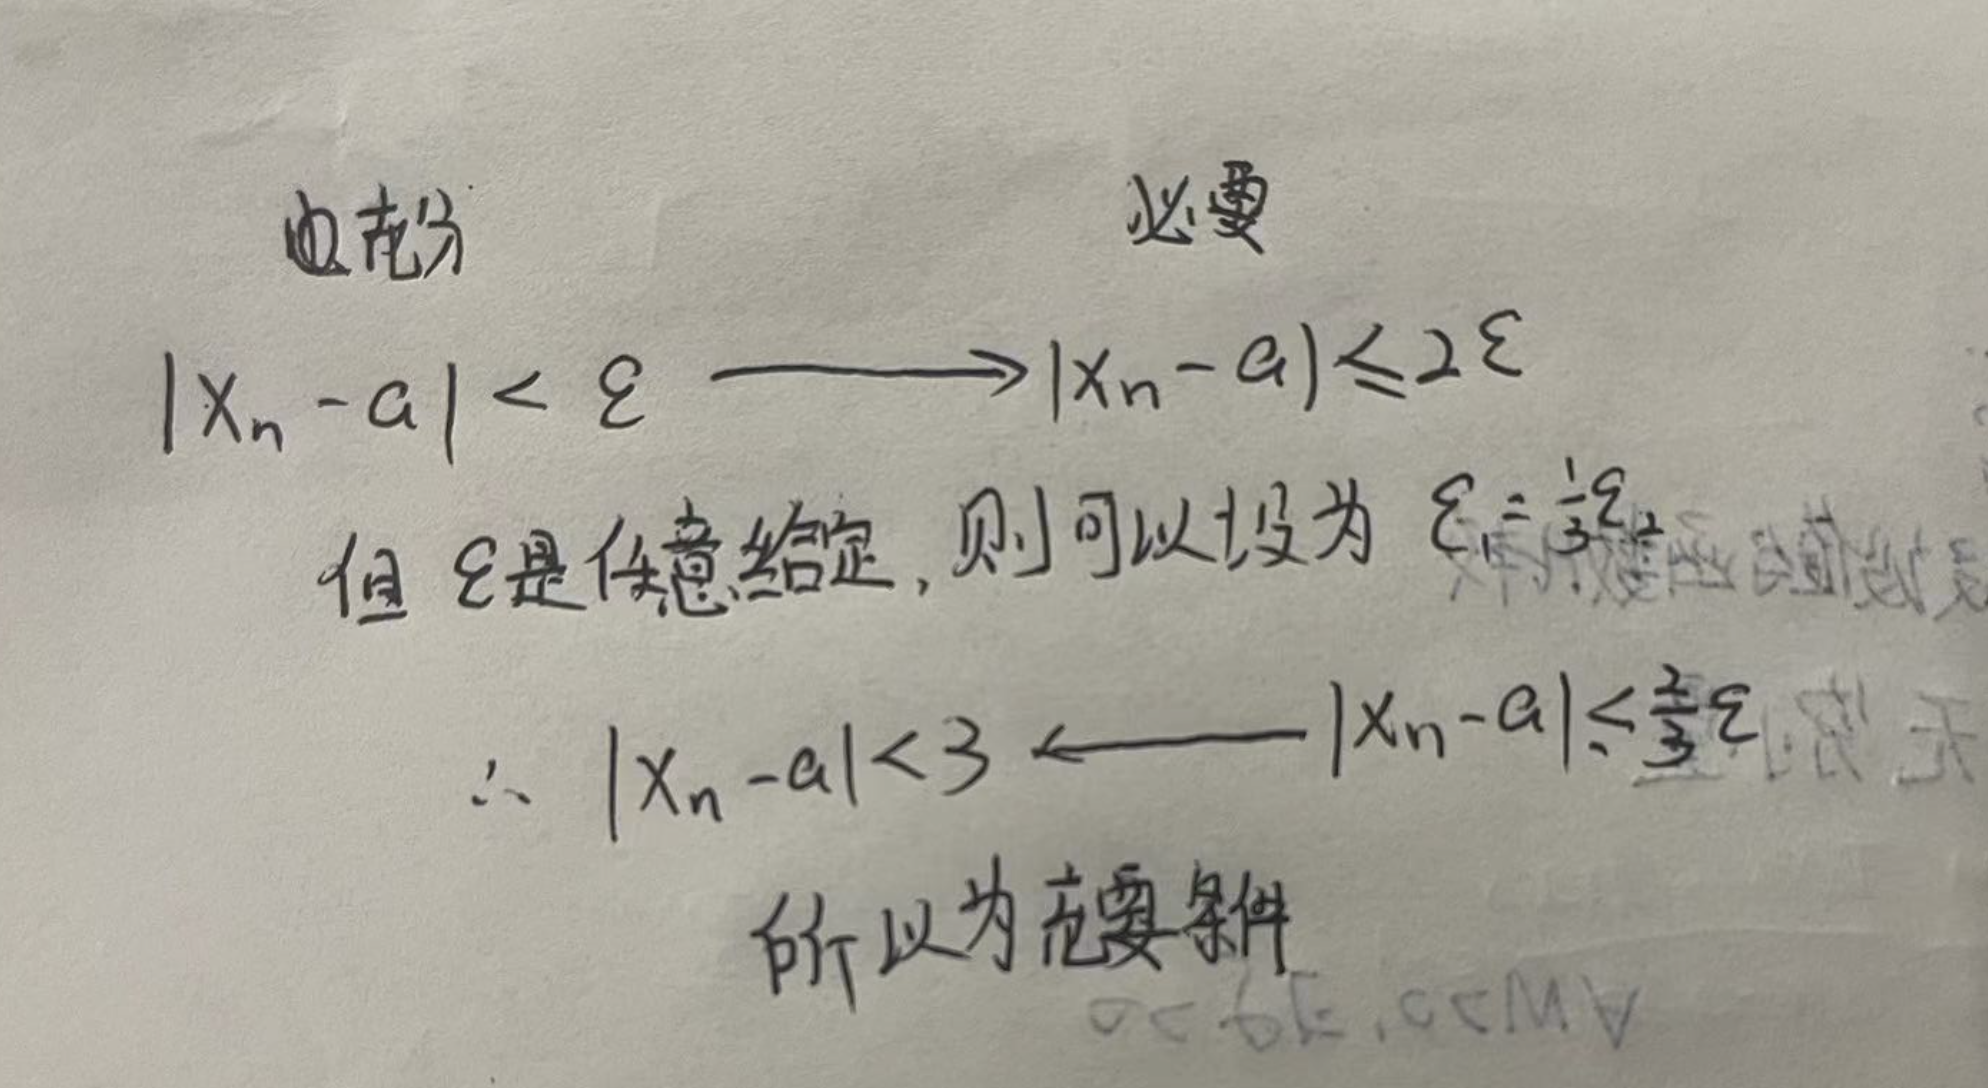 充分 必要
|xn-a|<ε ⟶ |xn-a|≤2ε
值 ε是任意给定,则可以设为 ε₁=1/3ε,
∴ |xn-a|<3 ⟵ |xn-a|≤2/3ε
所以为充要条件